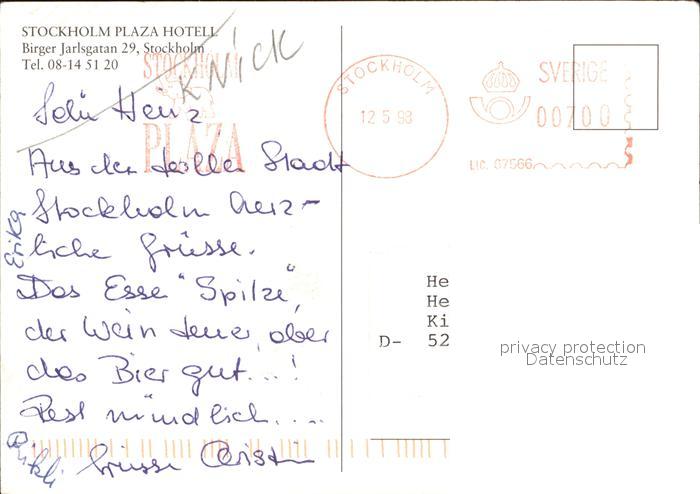 STOCKHOLM PLAZA HOTELL
Birger Jarlsgatan 29, Stockholm
Tel. 08-14 51 20
KNICK
STOCKHOLM
PLAZA
Heinz
Aus der tollen Stadt
Stockholm herz-
liche Grüsse.
Das Esse "Spitze",
der Wein teuer, aber
das Bier gut...!
Rest mündlich....
Grüsse
Erika
STOCKHOLM
12 5 98
SVERIGE
00700
LIC. 87566
He
He
Ki
D- 52
privacy protection
Datenschutz